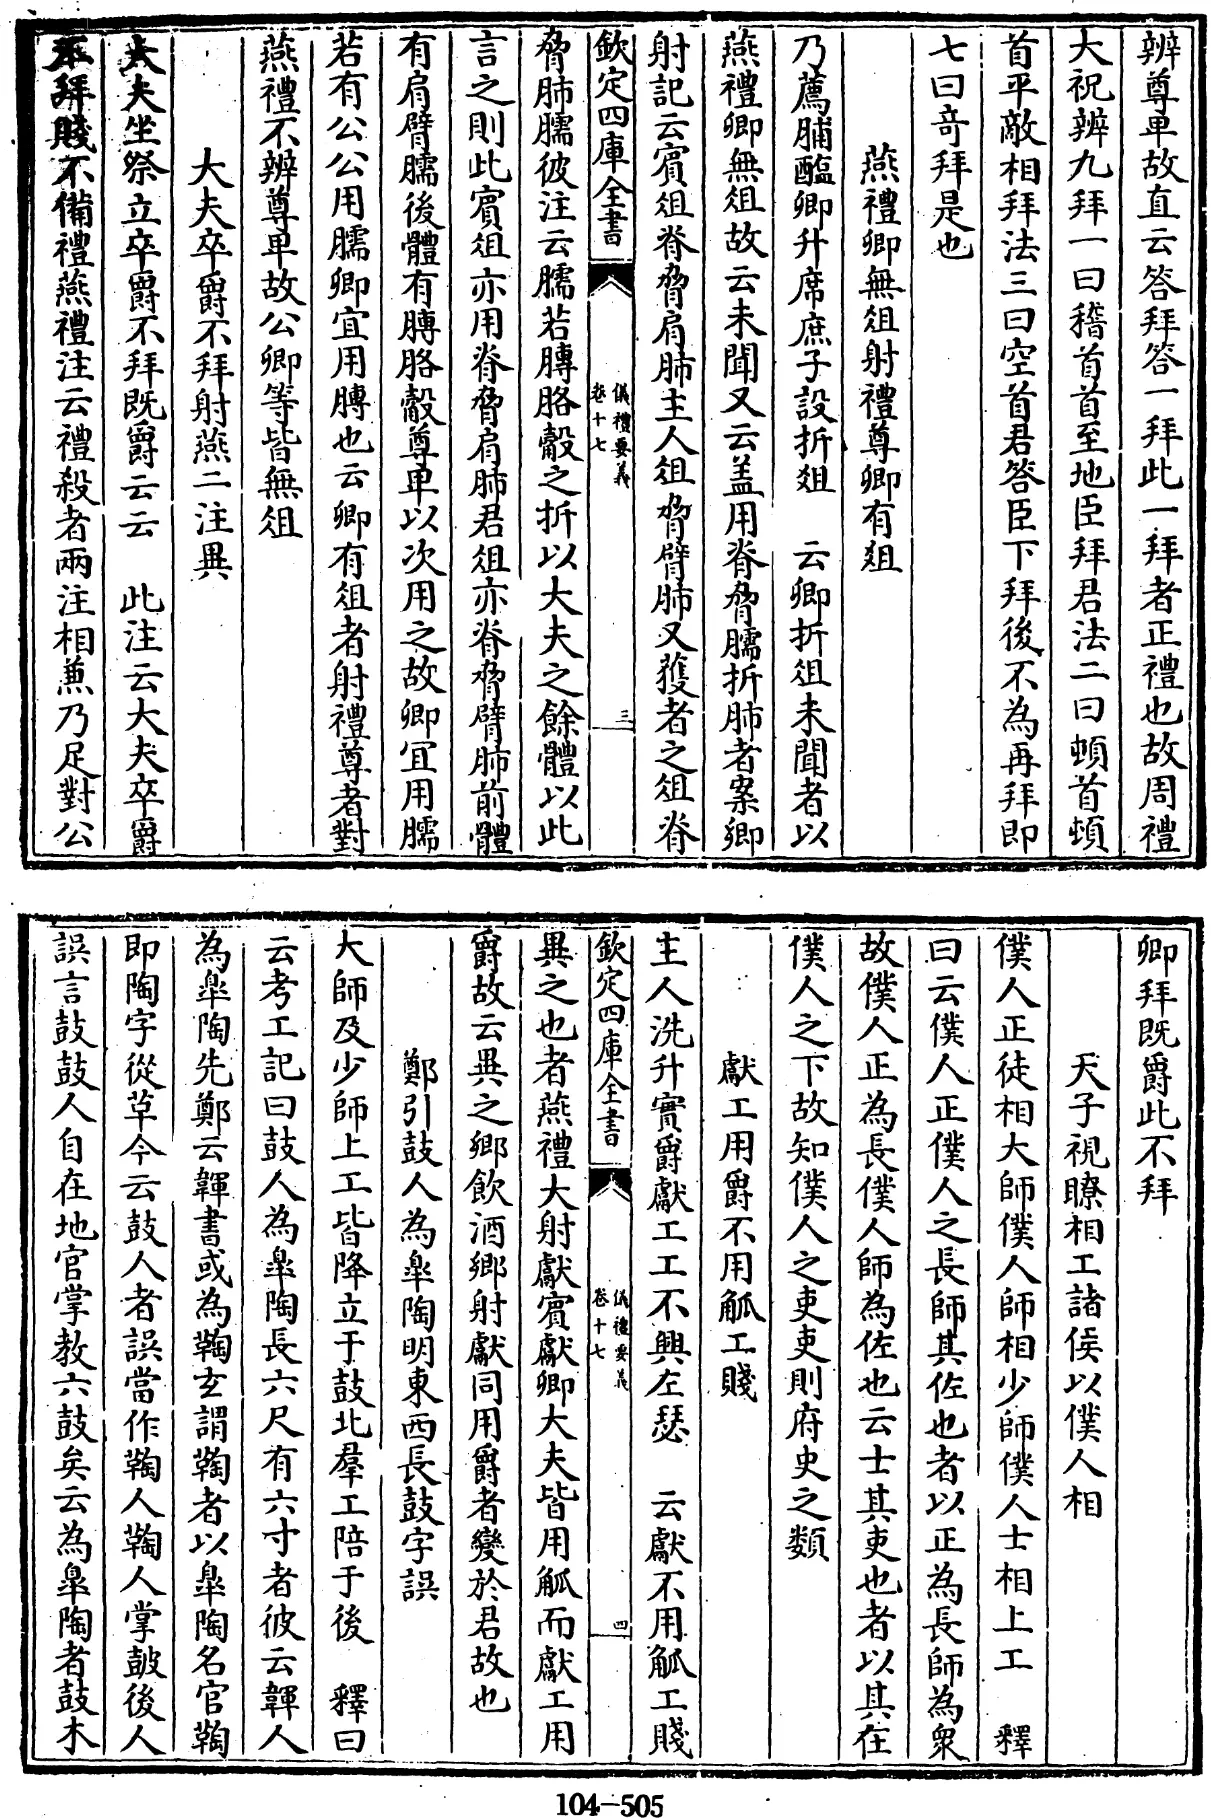 辨尊卑故直云答拜答一拜此一拜者正禮也故周禮
大祝辨九拜一曰稽首首至地臣拜君法二曰頓首頓
首平敵相拜法三曰空首君答臣下拜後不為再拜即
七曰竒拜是也
燕禮卿無俎射禮尊卿有俎
乃薦脯醢卿升席庶子設折俎 云卿折俎未聞者以
燕禮卿無俎故云未聞又云盖用脊脅臑折肺者案鄉
射記云賓俎脊脅肩肺主人俎脊脅臂肺又獲者之俎脊
脅肺臑彼注云臑若膞胳觳之折以大夫之餘體以此
言之則此賓俎亦用脊脅肩肺君俎亦脊脅臂肺前體
有肩臂臑後體有膞胳觳尊卑以次用之故卿宜用臑
若有公公用臑卿宜用膞也云卿有俎者射禮尊者對
燕禮不辨尊卑故公卿等皆無俎
大夫卒爵不拜射燕二注異
大夫坐祭立卒爵不拜既爵云云 此注云大夫卒爵
不拜賤不備禮燕禮注云禮殺者兩注相蒹乃足對公
欽定四庫全書
儀禮要義
卷十七
三
卿拜既爵此不拜
天子視瞭相工諸侯以僕人相
僕人正徒相大師僕人師相少師僕人士相上工 釋
曰云僕人正僕人之長師其佐也者以正為長師為衆
故僕人正為長僕人師為佐也云士其吏也者以其在
僕人之下故知僕人之吏吏則府史之類
獻工用爵不用觚工賤
主人洗升實爵獻工工不興左瑟 云獻不用觚工賤
異之也者燕禮大射獻賓獻卿大夫皆用觚而獻工用
爵故云異之鄉飲酒鄉射獻同用爵者變於君故也
鄭引鼓人為臯陶明東西長鼓字誤
大師及少師上工皆降立于鼓北羣工陪于後 釋曰
云考工記曰鼓人為臯陶長六尺有六寸者彼云韗人
為臯陶先鄭云韗書或為鞠玄謂鞠者以臯陶名官鞠
即陶字從革今云鼓人者誤當作鞠人鞠人掌皷後人
誤言鼓鼓人自在地官掌教六鼓矣云為臯陶者鼓木
欽定四庫全書
儀禮要義
卷十七
四
104-505